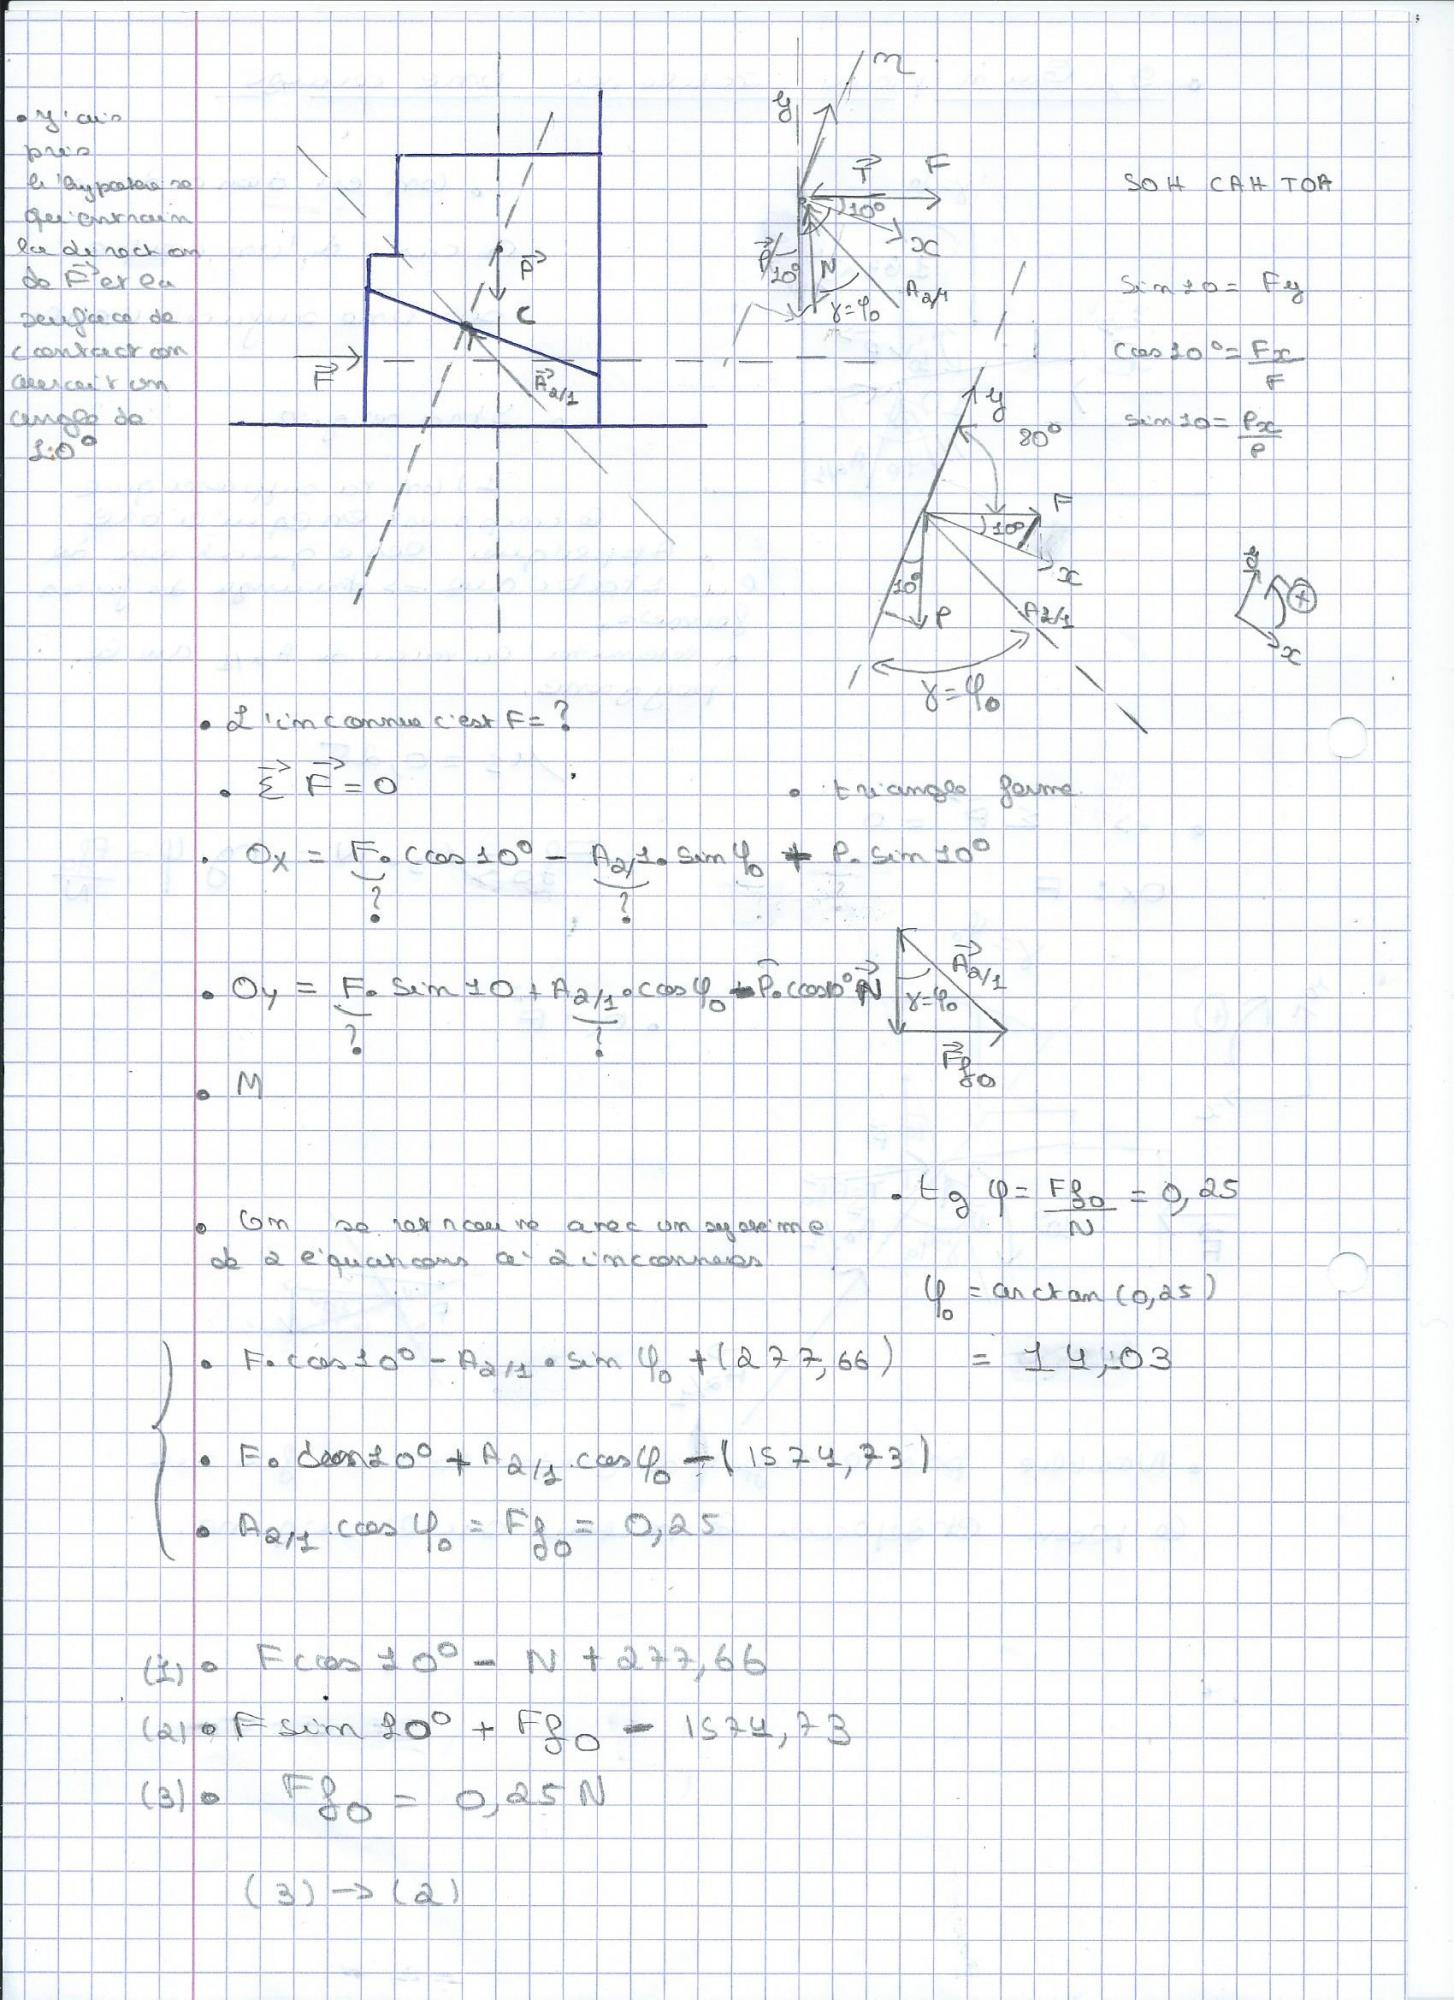 • J'ais
pris
l'hypothèse
qu'entrain
la direction
de F et la
surface de
contact on
aurait un
angle de
10°
P
C
F
A2/1
n
y
T
F
10°
x
P
10°
N
A2/1
γ=φ0
SOH CAH TOA
Sin10= Fy
cos10°= Fx/F
sin10= Px/P
y
80°
F
10°
x
10°
P
A2/1
γ=φ0
y
x
+
• L'inconnue c'est F= ?
• Σ F = 0
• triangle fermé
• Ox = F. cos10° - A2/1. sin φ0 + P. sin10°
? ?
• Oy = F. sin10 + A2/1. cosφ0 - P. cos10°
? ?
N
A2/1
γ=φ0
Ff0
• M
• tg φ = Ff0/N = 0,25
• On se retrouve avec un système
de 2 équations à 2 inconnues
φ0 = arctan(0,25)
= 14,03
• F. cos10° - A2/1. sin φ0 + (277,66)
• F. sin10° + A2/1. cosφ0 - (1574,73)
• A2/1 cos φ0 = Ff0 = 0,25
(1) • F cos 10° - N + 277,66
(2) • F sin 10° + Ff0 - 1574,73
(3) • Ff0 = 0,25 N
(3) → (2)